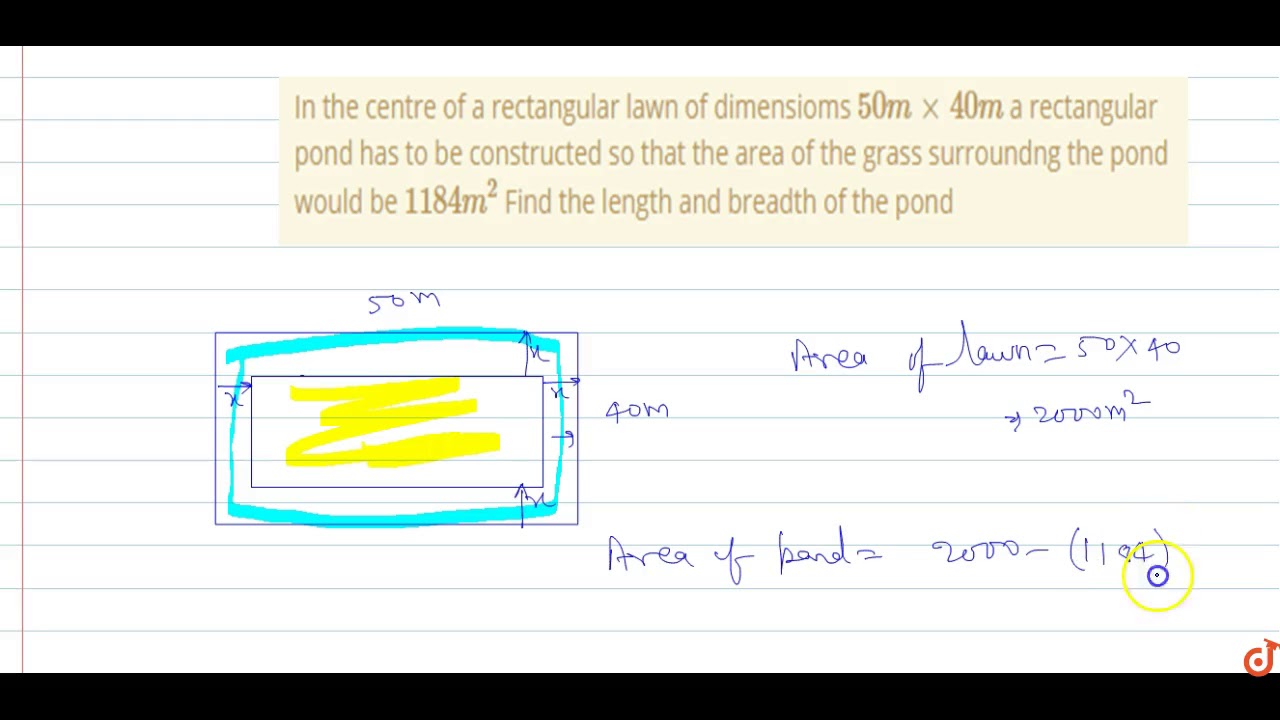 In the centre of a rectangular lawn of dimensioms 50m × 40m a rectangular
pond has to be constructed so that the area of the grass surroundng the pond
would be 1184m² Find the length and breadth of the pond
50m
x
x
x
40m
x
Area of lawn = 50 × 40
⇒ 2000m²
Area of pond = 2000 - (1184)